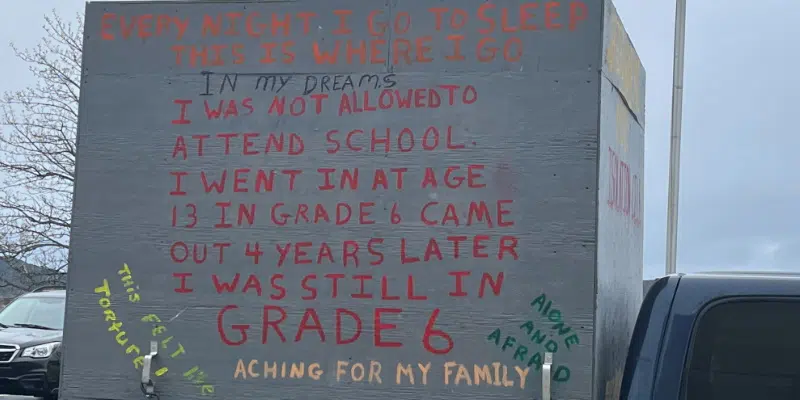 EVERY NIGHT I GO TO SLEEP
THIS IS WHERE I GO
IN MY DREAMS
I WAS NOT ALLOWED TO
ATTEND SCHOOL.
I WENT IN AT AGE
13 IN GRADE 6 CAME
OUT 4 YEARS LATER
I WAS STILL IN
GRADE 6
ACHING FOR MY FAMILY
THIS FELT LIKE
TORTURE
ALONE
AND
AFRAID